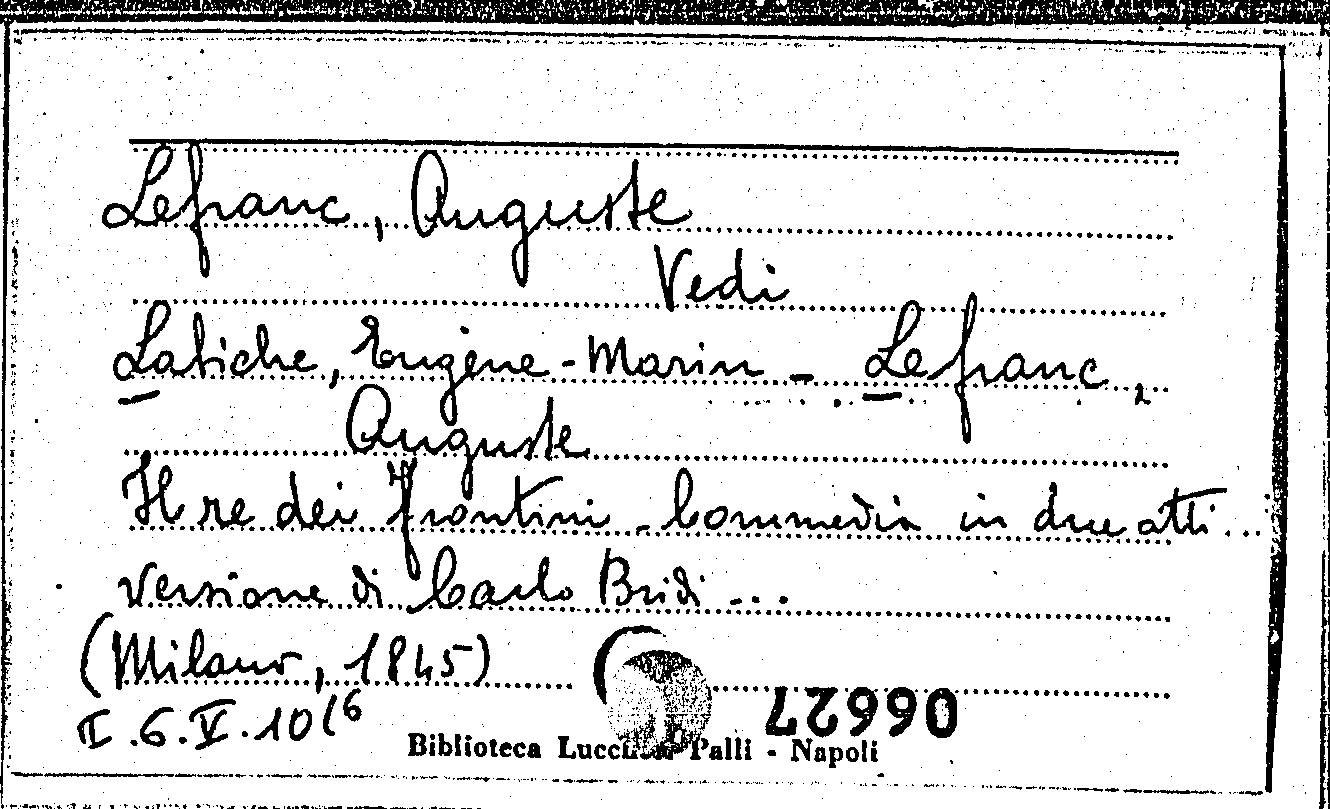 Lefranc, Auguste
Vedi
Labiche, Eugène-Marin - Lefranc,
Auguste
Il re dei Frontini - Commedia in due atti...
versione di Carlo Bridi ...
(Milano, 1845)
I.6.V.10(6
06627
Biblioteca Palli - Napoli